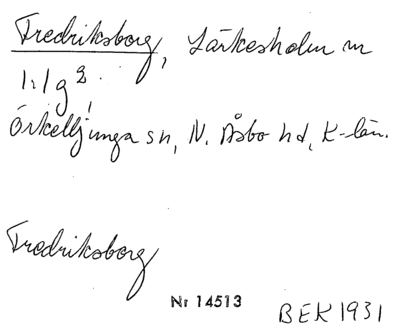 Fredriksborg, Lärkesholm m
1:1 g 2.
Örkelljunga sn, N. Åsbo hd, K-län.
Fredriksborg
Nr 14513
BEK 1931